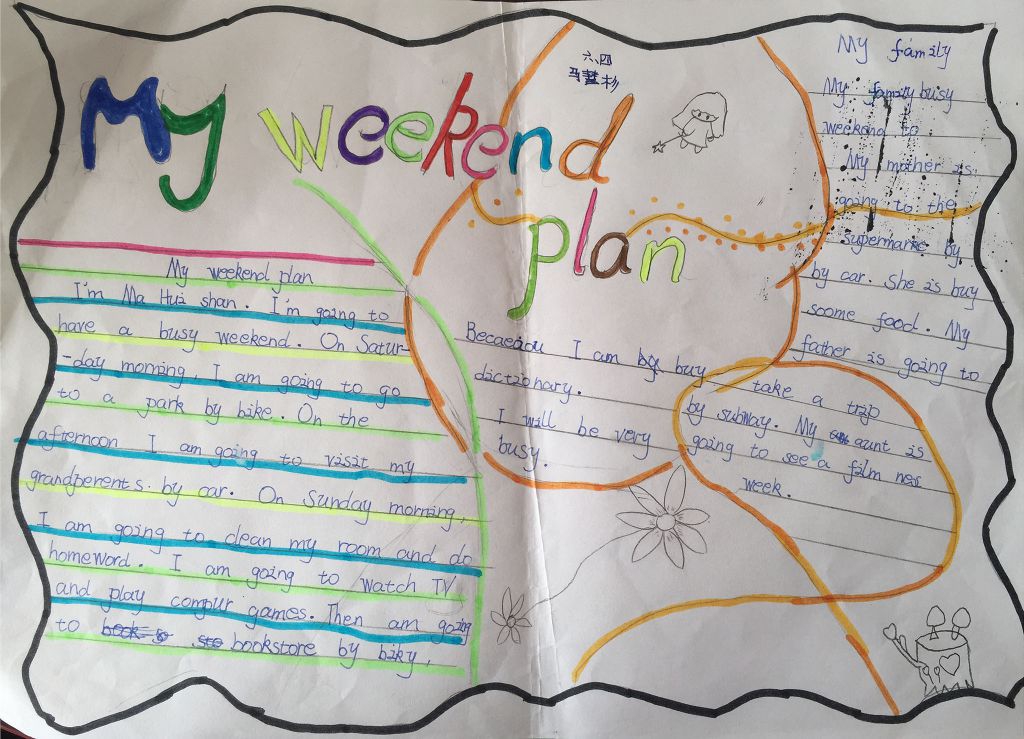 My weekend
plan
六、四
马慧杉
My weekend plan
I'm Ma Hui shan. I'm going to
have a busy weekend. On Satur-
-day morning, I am going to go
to a park by bike. On the
afternoon I am going to visit my
grandperents by car. On Sunday morning,
I am going to clean my room and do
homeword. I am going to watch TV
and play compur games. Then am going
to bookstore by biky,
I am buy
dictionary.
I will be very
busy.
My family
My family busy
weekend to
My mother is
going to the
supermarke by
by car. She is buy
soome food. My
father is going to
take a trip
by subway. My aunt is
going to see a film nes
week.